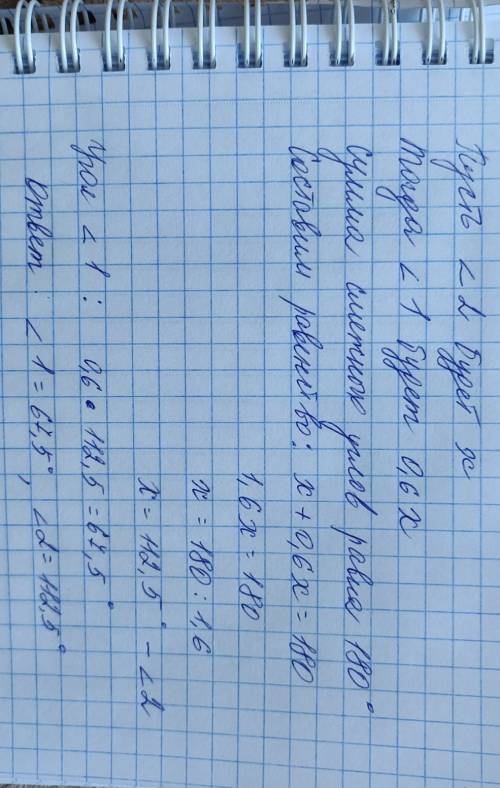 Пусть ∠2 будет x
тогда ∠1 будет 0,6x
сумма смежных углов равна 180°
Составим равенство: x + 0,6x = 180
1,6x = 180
x = 180 : 1,6
x = 112,5° - ∠2
Угол ∠1: 0,6 • 112,5 = 67,5°
Ответ: ∠1 = 67,5°, ∠2 = 112,5°